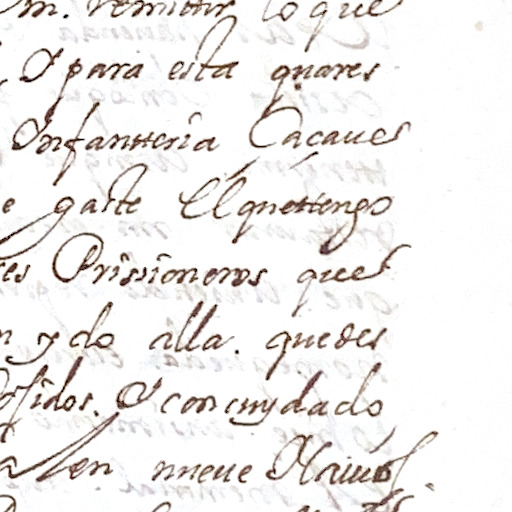 m. remittir lo que
Y para esta quares
Infantteria Cacaues
e gaste El quettengo
es Prissioneros que
n ydo alla. quedes
sidos. Y concuydado
en nueue